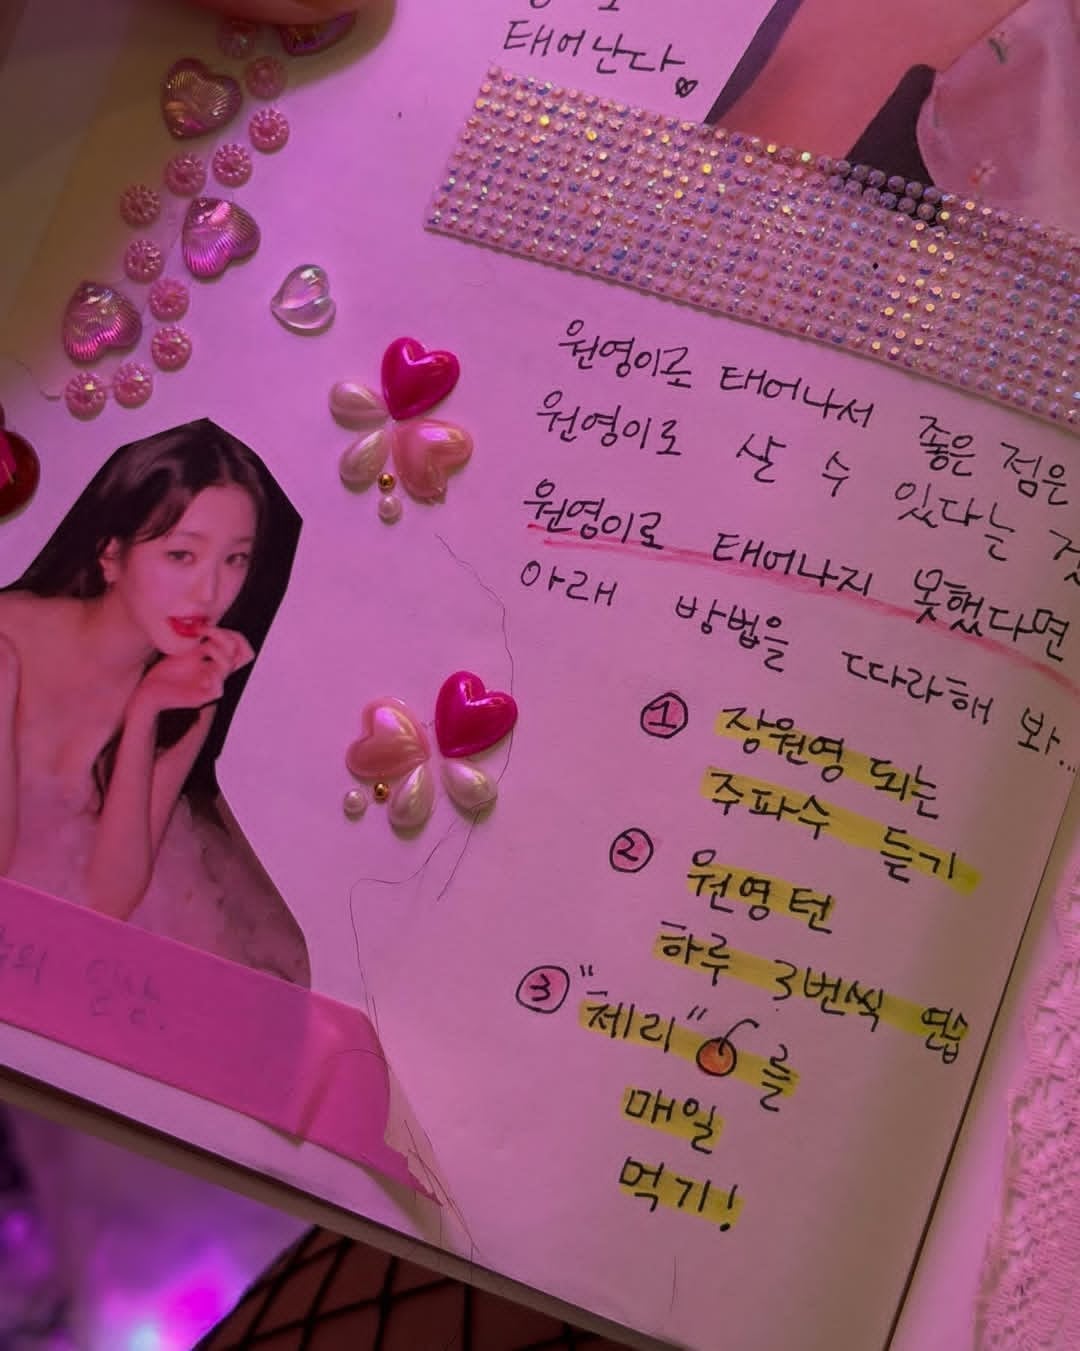 태어난다
원영이로 태어나서 좋은 점은
원영이로 살 수 있다는
원영이로 태어나지 못했다면
아래 방법을 따라해 봐...
① 장원영 되는
주파수 듣기
② 원영턴
하루 3번씩 연습
③ "체리" 를
매일
먹기!